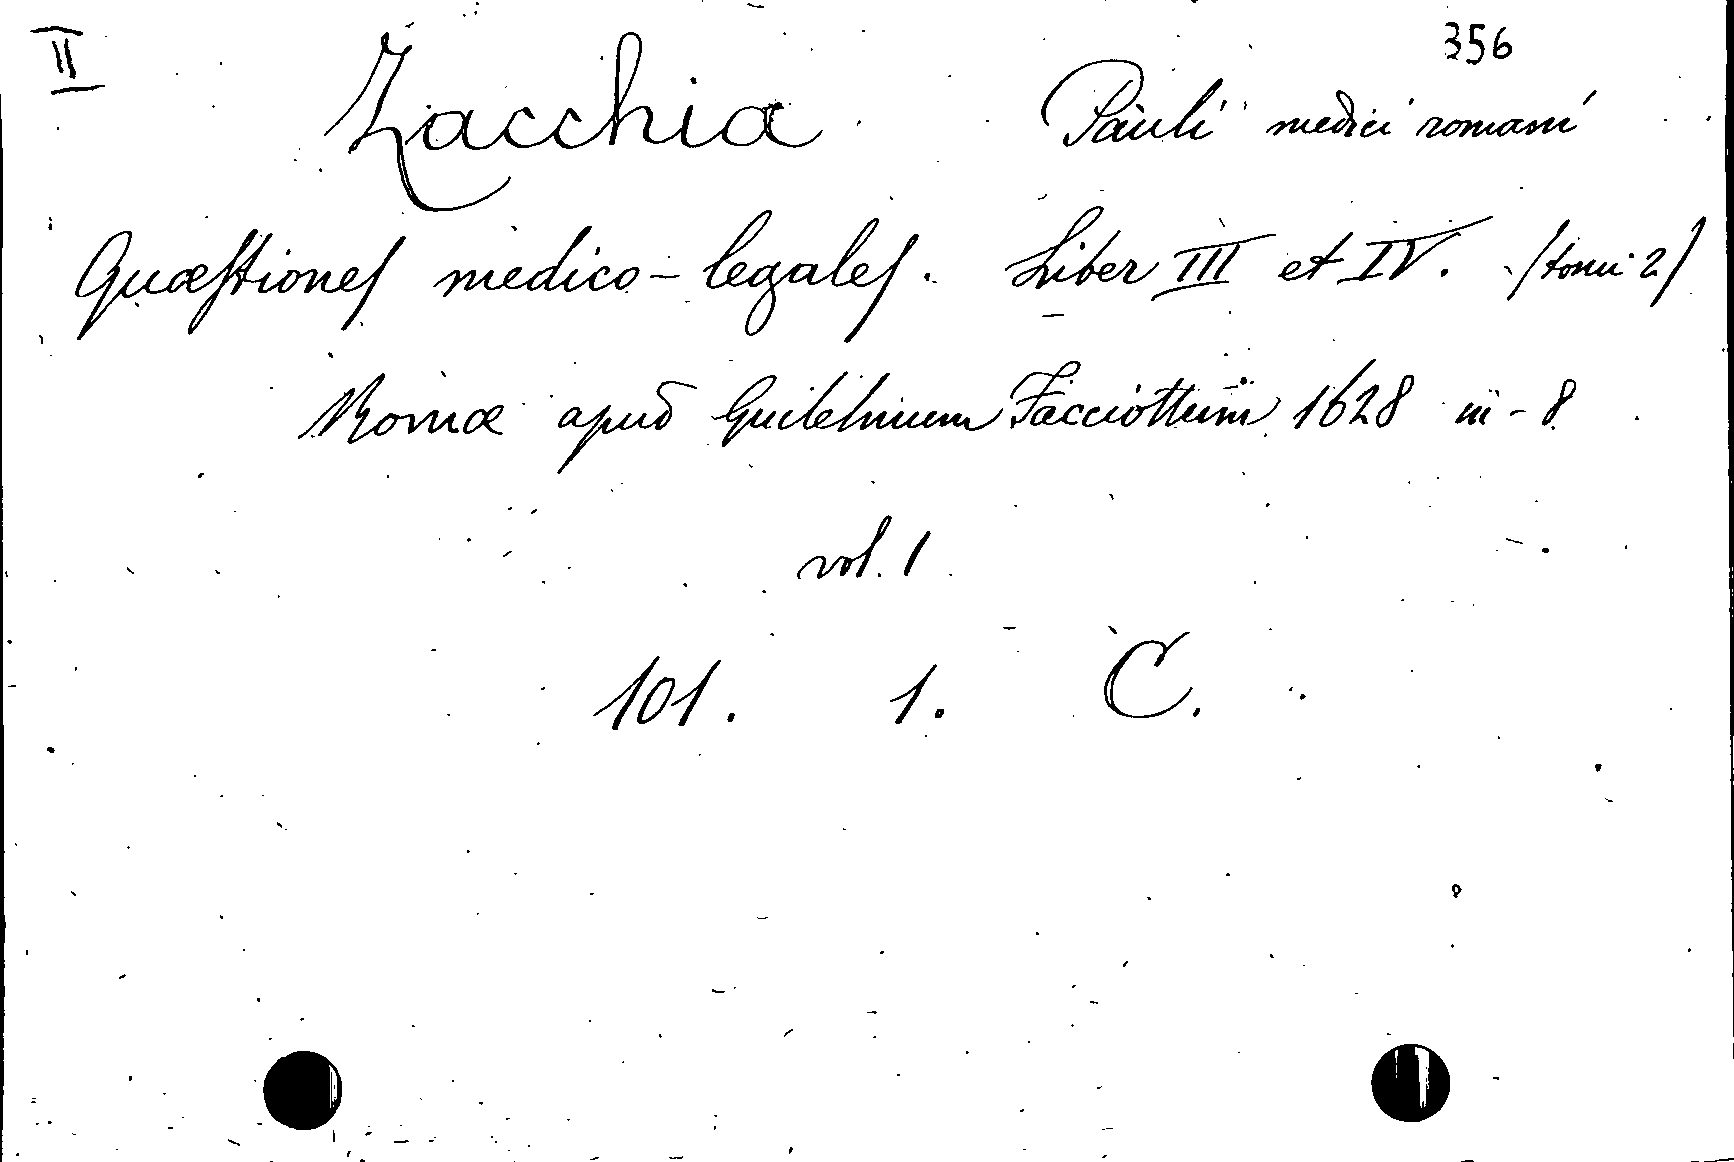 II
356
Zacchia Pauli medici romani
Quæstiones medico-legales. Liber III et IV. (tomi 2)
Romæ apud Guilelmum Facciottum 1628 in-8
vol. 1
101. 1. C.